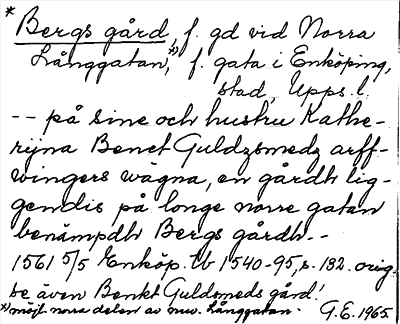 * Bergs gård, f. gd vid Norra
Långgatan,*) f. gata i Enköping,
stad, Upps. l.
-- på sine och hustru Kathe-
rijna Benct Guldzsmedz arff-
wingers wägna, en gårdh lig-
gendis på longe norre gatan
benämpdh Bergs gårdh.--
1561 5/5 Enköp. tb 1540-95, s. 132. orig.
Se även Benkt Guldsmeds gård!
*) möjl. norra delen av nuv. Långgatan. G.E. 1965